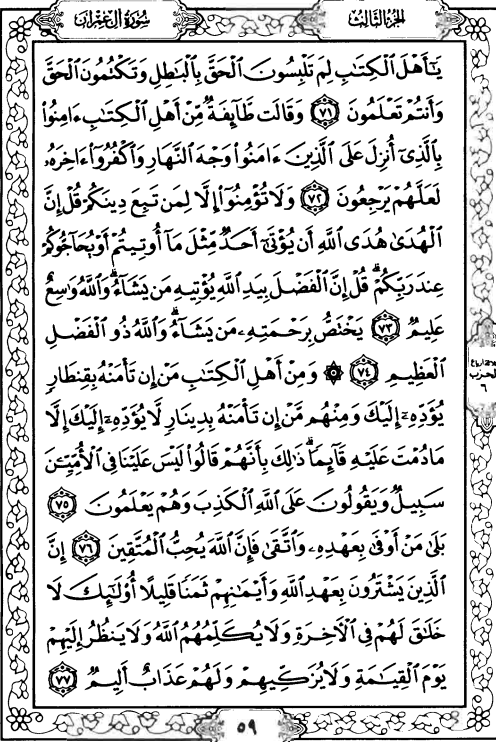 سُورَةُ آلِ عِمْرَان
الجُزءُ الثَّالِثُ
يَٰٓأَهْلَ ٱلْكِتَٰبِ لِمَ تَلْبِسُونَ ٱلْحَقَّ بِٱلْبَٰطِلِ وَتَكْتُمُونَ ٱلْحَقَّ
وَأَنتُمْ تَعْلَمُونَ ﴿٧١﴾ وَقَالَت طَّآئِفَةٌ مِّنْ أَهْلِ ٱلْكِتَٰبِ ءَامِنُوا۟
بِٱلَّذِىٓ أُنزِلَ عَلَى ٱلَّذِينَ ءَامَنُوا۟ وَجْهَ ٱلنَّهَارِ وَٱكْفُرُوٓا۟ ءَاخِرَهُۥ
لَعَلَّهُمْ يَرْجِعُونَ ﴿٧٢﴾ وَلَا تُؤْمِنُوٓا۟ إِلَّا لِمَن تَبِعَ دِينَكُمْ قُلْ إِنَّ
ٱلْهُدَىٰ هُدَى ٱللَّهِ أَن يُؤْتَىٰٓ أَحَدٌ مِّثْلَ مَآ أُوتِيتُمْ أَوْ يُحَآجُّوكُمْ
عِندَ رَبِّكُمْ ۗ قُلْ إِنَّ ٱلْفَضْلَ بِيَدِ ٱللَّهِ يُؤْتِيهِ مَن يَشَآءُ ۗ وَٱللَّهُ وَٰسِعٌ
عَلِيمٌ ﴿٧٣﴾ يَخْتَصُّ بِرَحْمَتِهِۦ مَن يَشَآءُ ۗ وَٱللَّهُ ذُو ٱلْفَضْلِ
ٱلْعَظِيمِ ﴿٧٤﴾ ۞ وَمِنْ أَهْلِ ٱلْكِتَٰبِ مَنْ إِن تَأْمَنْهُ بِقِنطَارٍ
يُؤَدِّهِۦٓ إِلَيْكَ وَمِنْهُم مَّنْ إِن تَأْمَنْهُ بِدِينَارٍ لَّا يُؤَدِّهِۦٓ إِلَيْكَ إِلَّا
مَا دُمْتَ عَلَيْهِ قَآئِمًا ۗ ذَٰلِكَ بِأَنَّهُمْ قَالُوا۟ لَيْسَ عَلَيْنَا فِى ٱلْأُمِّيِّـۧنَ
سَبِيلٌ وَيَقُولُونَ عَلَى ٱللَّهِ ٱلْكَذِبَ وَهُمْ يَعْلَمُونَ ﴿٧٥﴾
بَلَىٰ مَنْ أَوْفَىٰ بِعَهْدِهِۦ وَٱتَّقَىٰ فَإِنَّ ٱللَّهَ يُحِبُّ ٱلْمُتَّقِينَ ﴿٧٦﴾ إِنَّ
ٱلَّذِينَ يَشْتَرُونَ بِعَهْدِ ٱللَّهِ وَأَيْمَٰنِهِمْ ثَمَنًا قَلِيلًا أُو۟لَٰٓئِكَ لَا
خَلَٰقَ لَهُمْ فِى ٱلْءَاخِرَةِ وَلَا يُكَلِّمُهُمُ ٱللَّهُ وَلَا يَنظُرُ إِلَيْهِمْ
يَوْمَ ٱلْقِيَٰمَةِ وَلَا يُزَكِّيهِمْ وَلَهُمْ عَذَابٌ أَلِيمٌ ﴿٧٧﴾
الحزب
٦
٥٩